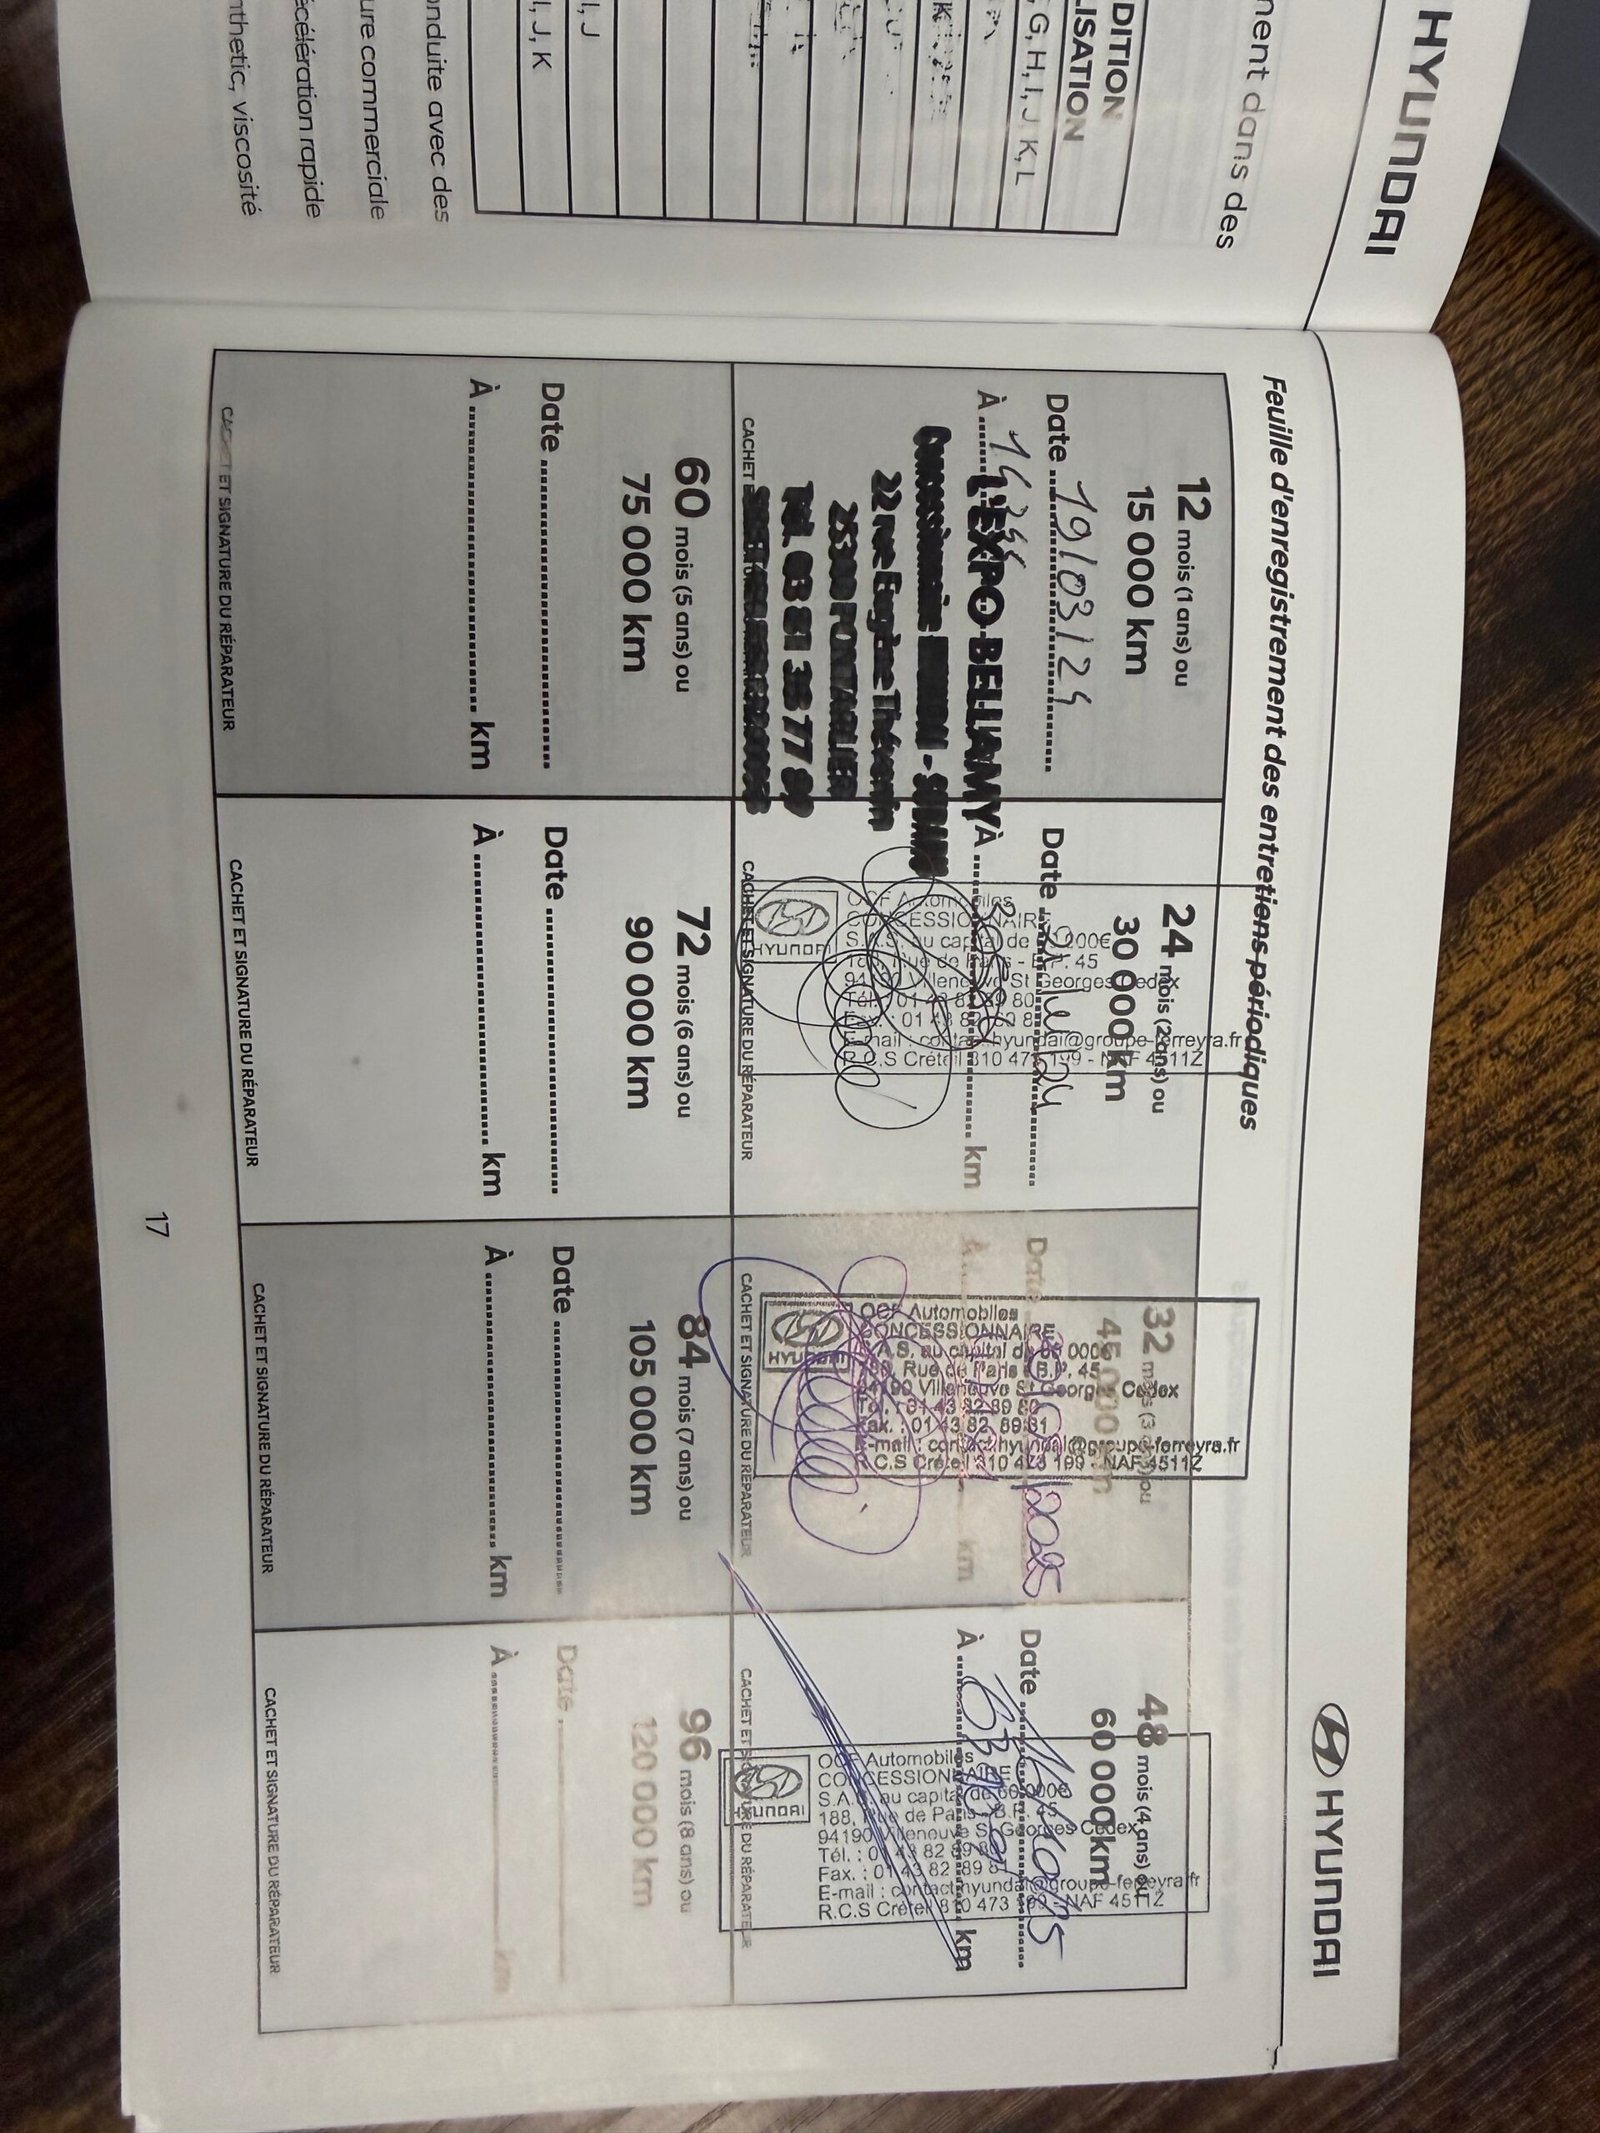 HYUNDAI
nent dans des
DITION
LISATION
G, H, I, J, K, L
I, J
I, J, K
onduite avec des
ure commerciale
ccélération rapide
nthetic, viscosité
HYUNDAI
Feuille d'enregistrement des entretiens périodiques
12 mois (1 ans) ou
15 000 km
Date 19/03/24
À
L'EXPO BELLAMY
22 rue Eugène Thévenin
25300 PONTARLIER
CACHET
24 mois (2 ans) ou
30 000 km
Date
À km
OCF Automobiles
CONCESSIONNAIRE
S.A.S. au capital de
Rue de Paris - B.P. 45
94190 Villeneuve St Georges Cedex
Tél. : 01 43 82 89 80
Fax. : 01 43 82 89 81
E-mail : contact.hyundai@groupe-ferreyra.fr
R.C.S Créteil 310 473 199 - NAF 4511Z
HYUNDAI
CACHET ET SIGNATURE DU RÉPARATEUR
32 mois (3 ans) ou
45 000 km
Date
À km
OCF Automobiles
CONCESSIONNAIRE
S.A.S. au capital de 000€
188, Rue de Paris - B.P. 45
94190 Villeneuve St Georges Cedex
Tél. : 01 43 82 89 80
Fax. : 01 43 82 89 81
E-mail : contact.hyundai@groupe-ferreyra.fr
R.C.S Créteil 310 473 199 - NAF 4511Z
HYUNDAI
CACHET ET SIGNATURE DU RÉPARATEUR
48 mois (4 ans) ou
60 000 km
Date
À km
OCF Automobiles
CONCESSIONNAIRE
S.A.S. au capital de
188, Rue de Paris - B.P. 45
94190 Villeneuve St Georges Cedex
Tél. : 01 43 82 89 80
Fax. : 01 43 82 89 81
E-mail : contact.hyundai@groupe-ferreyra.fr
R.C.S Créteil 310 473 199 - NAF 4511Z
HYUNDAI
CACHET ET SIGNATURE DU RÉPARATEUR
60 mois (5 ans) ou
75 000 km
Date
À km
CACHET ET SIGNATURE DU RÉPARATEUR
72 mois (6 ans) ou
90 000 km
Date
À km
CACHET ET SIGNATURE DU RÉPARATEUR
84 mois (7 ans) ou
105 000 km
Date
À km
CACHET ET SIGNATURE DU RÉPARATEUR
96 mois (8 ans) ou
120 000 km
Date
À km
CACHET ET SIGNATURE DU RÉPARATEUR
17